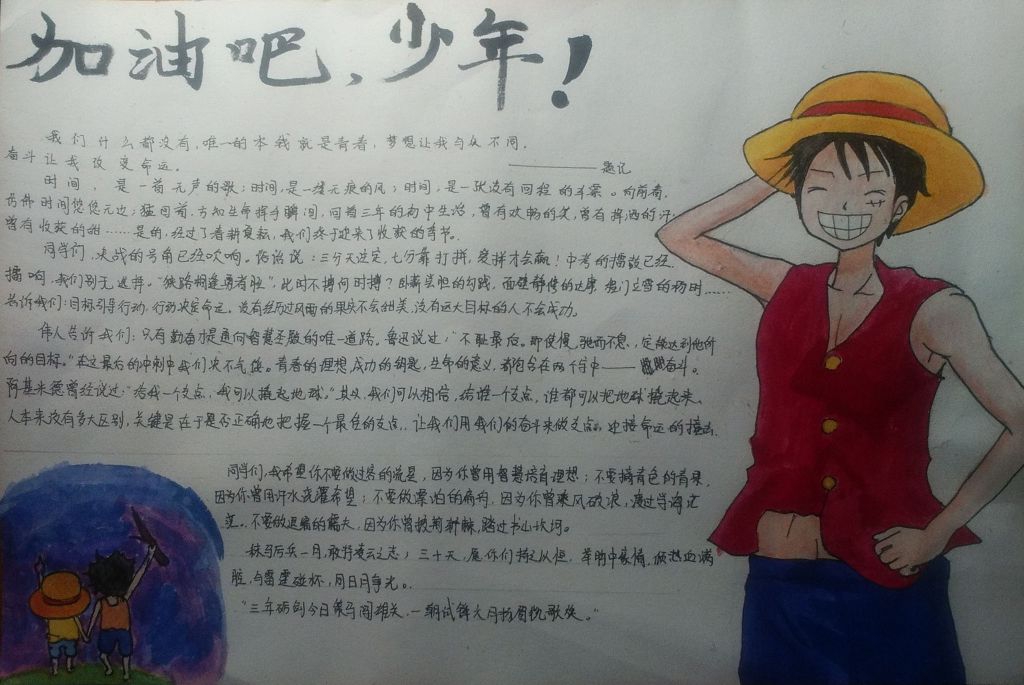 加油吧，少年！
我们什么都没有，唯一的本钱就是青春，梦想让我与众不同，
奋斗让我改变命运。
———题记
时间，是一首无声的歌；时间，是一缕无痕的风；时间，是一张没有回程的车票。向前看，
时间悠悠无边；猛回首，方知生命挥手瞬间，回首三年的初中生活，曾有欢畅的笑，曾有挥洒的汗，
曾有收获的甜……是的，经过了春耕夏耘，我们终于迎来了收获的季节。
同学们，决战的号角已经吹响。俗话说：三分天注定，七分靠打拼，爱拼才会赢！中考的擂鼓已经
擂响，我们别无选择。“狭路相逢勇者胜”，此时不搏何时搏？卧薪尝胆的勾践，面壁静修的达摩，程门立雪的杨时……
告诉我们：目标引导行动，行动决定命运。没有经历过风雨的果实不会甜美，没有远大目标的人不会成功。
伟人告诉我们：只有勤奋才是通向智慧圣殿的唯一道路。鲁迅说过：“不耻最后。即使慢，驰而不息，定能达到他所
向的目标。”在这最后的冲刺中我们决不气馁。青春的理想，成功的钥匙，生命的意义，都包含在两个字中——奋斗。
阿基米德曾经说过：“给我一个支点，我可以撬起地球。”其实，我们可以相信，给谁一个支点，谁都可以把地球撬起来。
人本来没有多大区别，关键是在于是否正确地把握一个最佳的支点，让我们用我们的奋斗来做支点，迎接命运的撞击。
同学们，我希望你不要做过客的流星，因为你曾用智慧培育理想；不要摘青色的苹果，
因为你曾用汗水浇灌希望；不要做漂泊的扁舟，因为你曾乘风破浪，渡过学海茫
茫。不要做退缩的懦夫，因为你曾披荆斩棘，踏过书山坎坷。
秣马厉兵一月，敢持凌云之志；三十天，愿你们持之以恒，革命中豪情，倾热血满
腔，与雷霆碰杯，同日月争光。
“三年砺剑今日策马闯雄关，一朝试锋六月扬眉悦歌缺。”